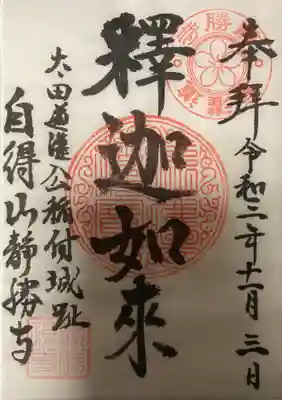 奉拜
令和二年十一月三日
釋迦如來
太田道灌公稲付城趾
自得山静勝寺